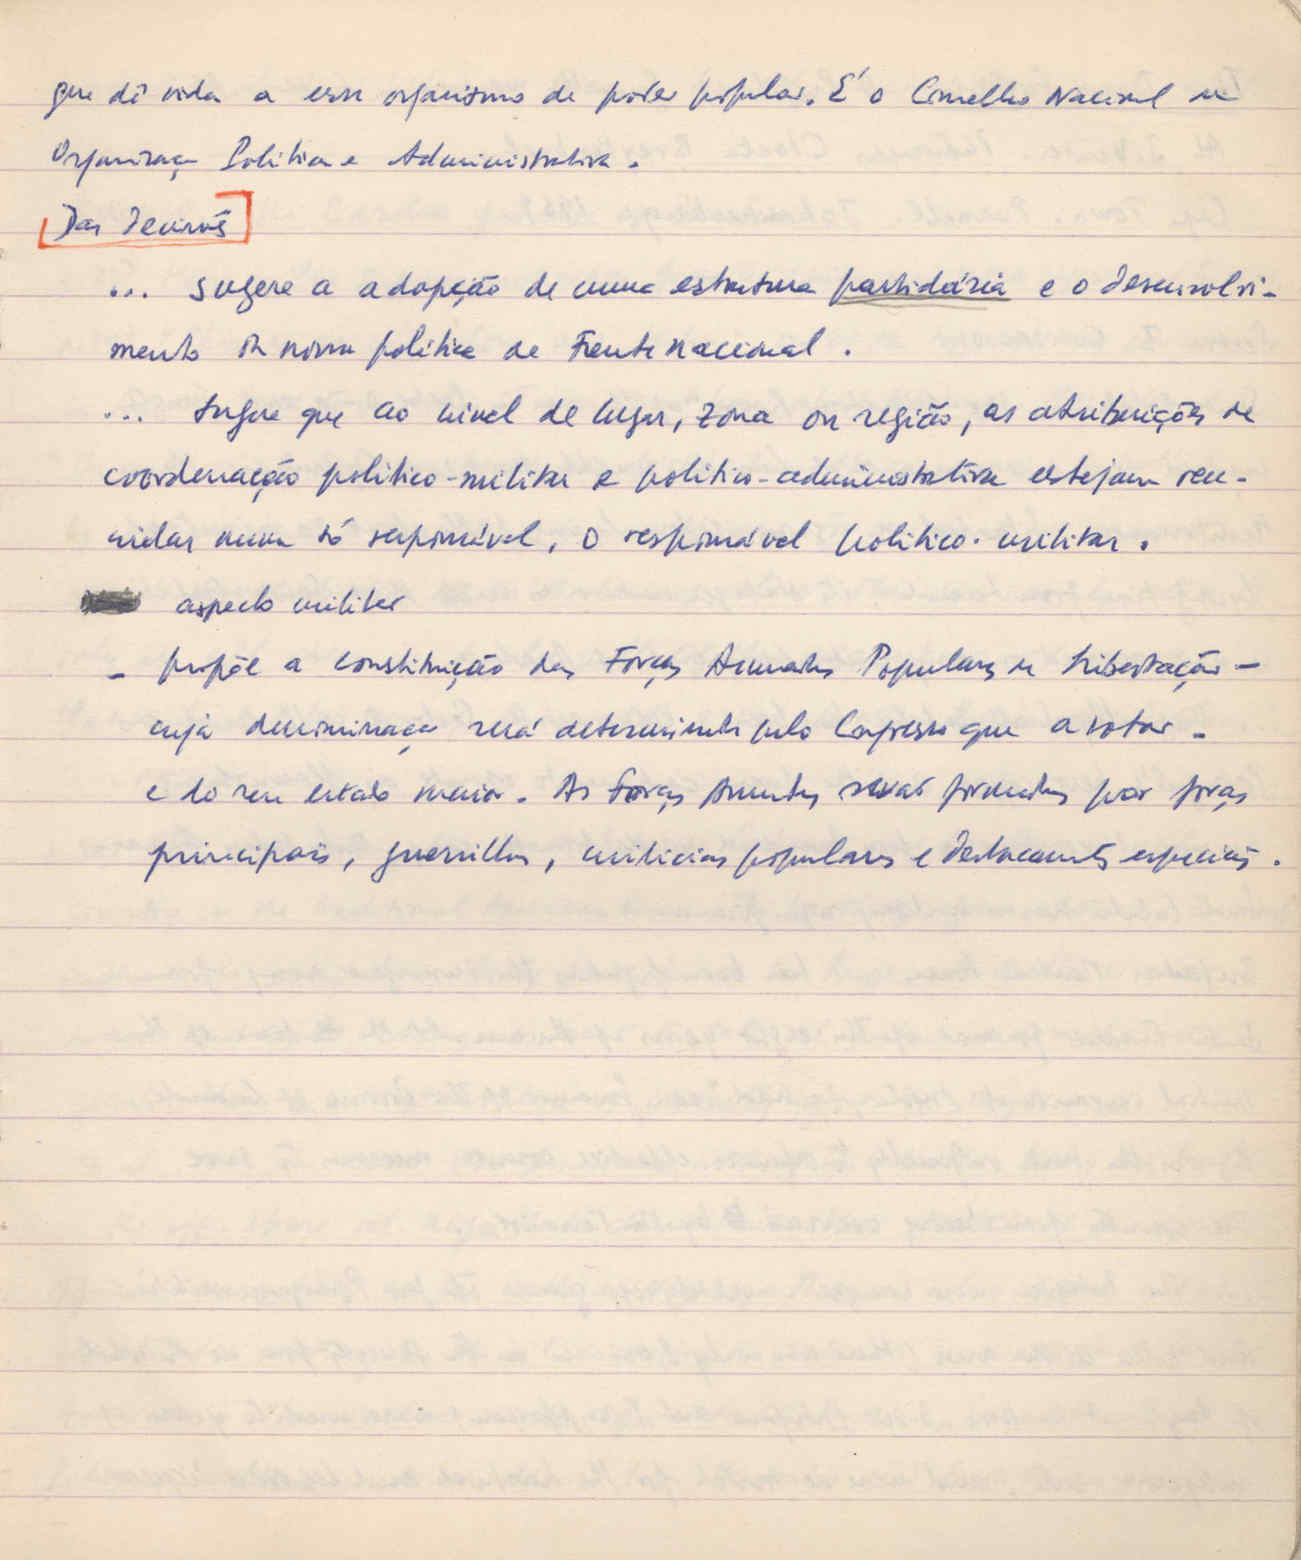 que dê vida a esse organismo de poder popular. É o Conselho Nacional de
Organização Política e Administrativa.
Das Decisões
... sugere a adopção de uma estrutura partidária e o desenvolvi-
mento da nova política de Frente Nacional.
... Sugere que ao nível de lugar, zona ou região, as atribuições de
coordenação politico-militar e politico-administrativa estejam reu-
nidas num só responsável, o responsável politico-militar.
aspecto militar
- propõe a constituição das Forças Armadas Populares de Libertação -
cuja denominação será determinada pelo Congresso que a votar -
e do seu estado maior. As Forças Armadas serão formadas por forças
principais, guerrilhas, milicias populares e destacamentos especiais.